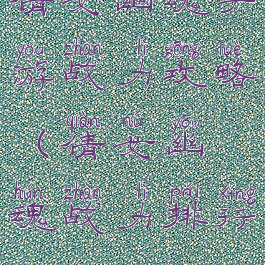 倩女幽魂手
yóu zhàn lì gōng lüè
游战力攻略
qiàn nǚ yōu
（倩女幽
hún zhàn lì pái xíng
魂战力排行